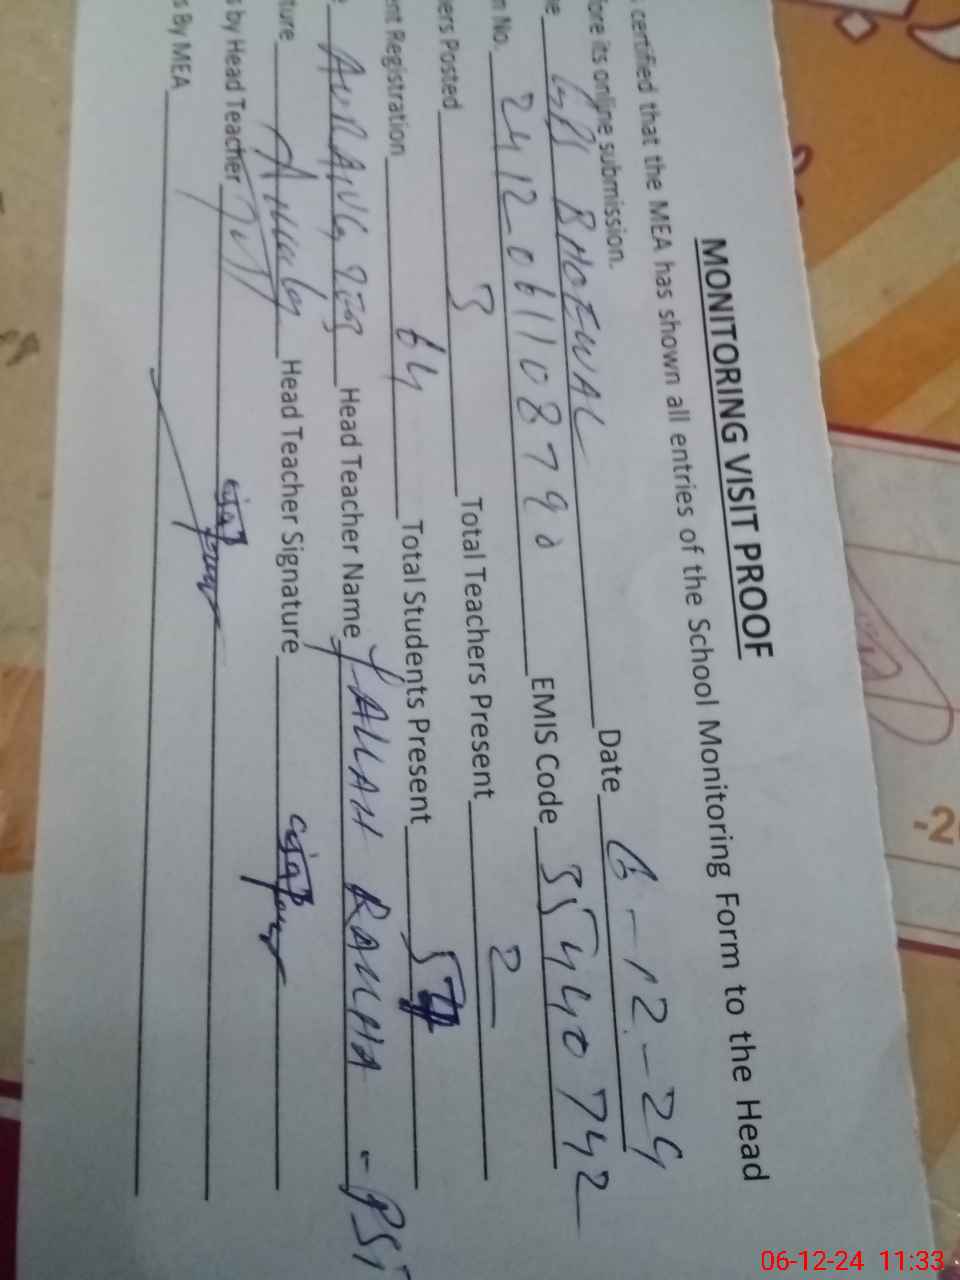 MONITORING VISIT PROOF
certified that the MEA has shown all entries of the School Monitoring Form to the Head
its online submission.
GPS BHOEWAL Date 6-12-24
No. 2412061108790 EMIS Code 35440742
Posted 3 Total Teachers Present 2
Registration 64 Total Students Present 57
Head Teacher Name ALLAH RAKHA - PST
Head Teacher Signature
by Head Teacher
By MEA
-2
06-12-24 11:33